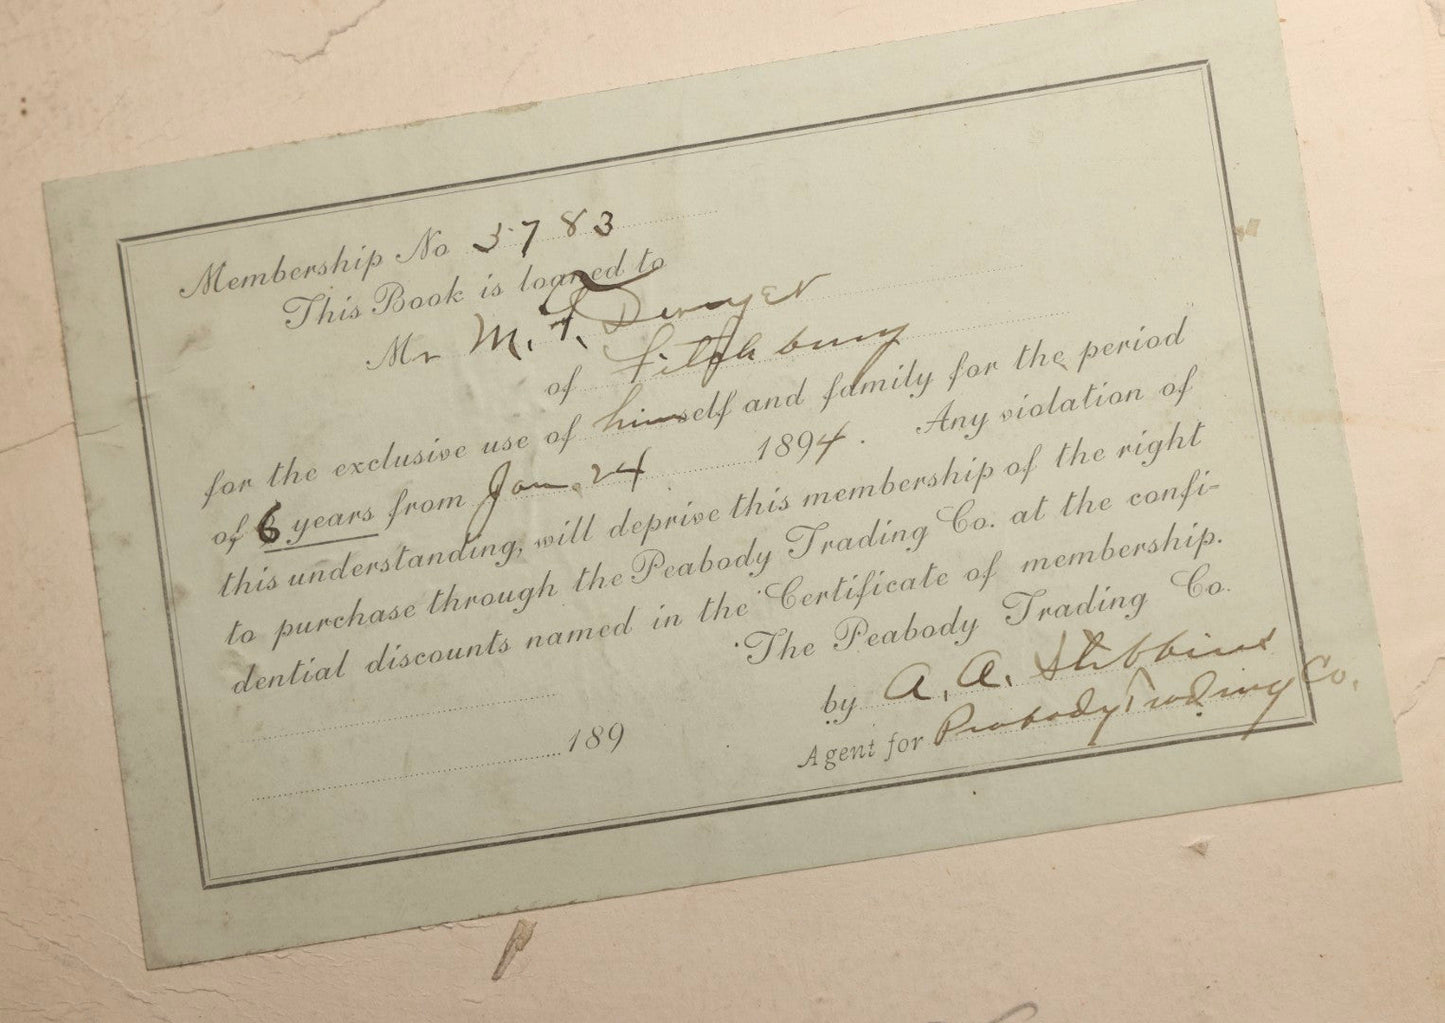 Membership No 3783
This Book is loaned to
Mr M. F. Dwyer
of Fitchburg
for the exclusive use of himself and family for the period
of 6 years from Jan. 24 1894. Any violation of
this understanding, will deprive this membership of the right
to purchase through the Peabody Trading Co. at the confi-
dential discounts named in the Certificate of membership.
The Peabody Trading Co.
by A. A. Stibbins
189
Agent for Peabody Trading Co.